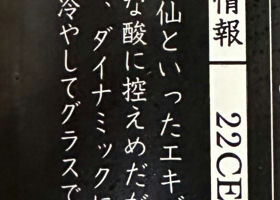 情報
22CE
仙といったエキゾ
な酸に控えめだが
、ダイナミックに
冷やしてグラスで